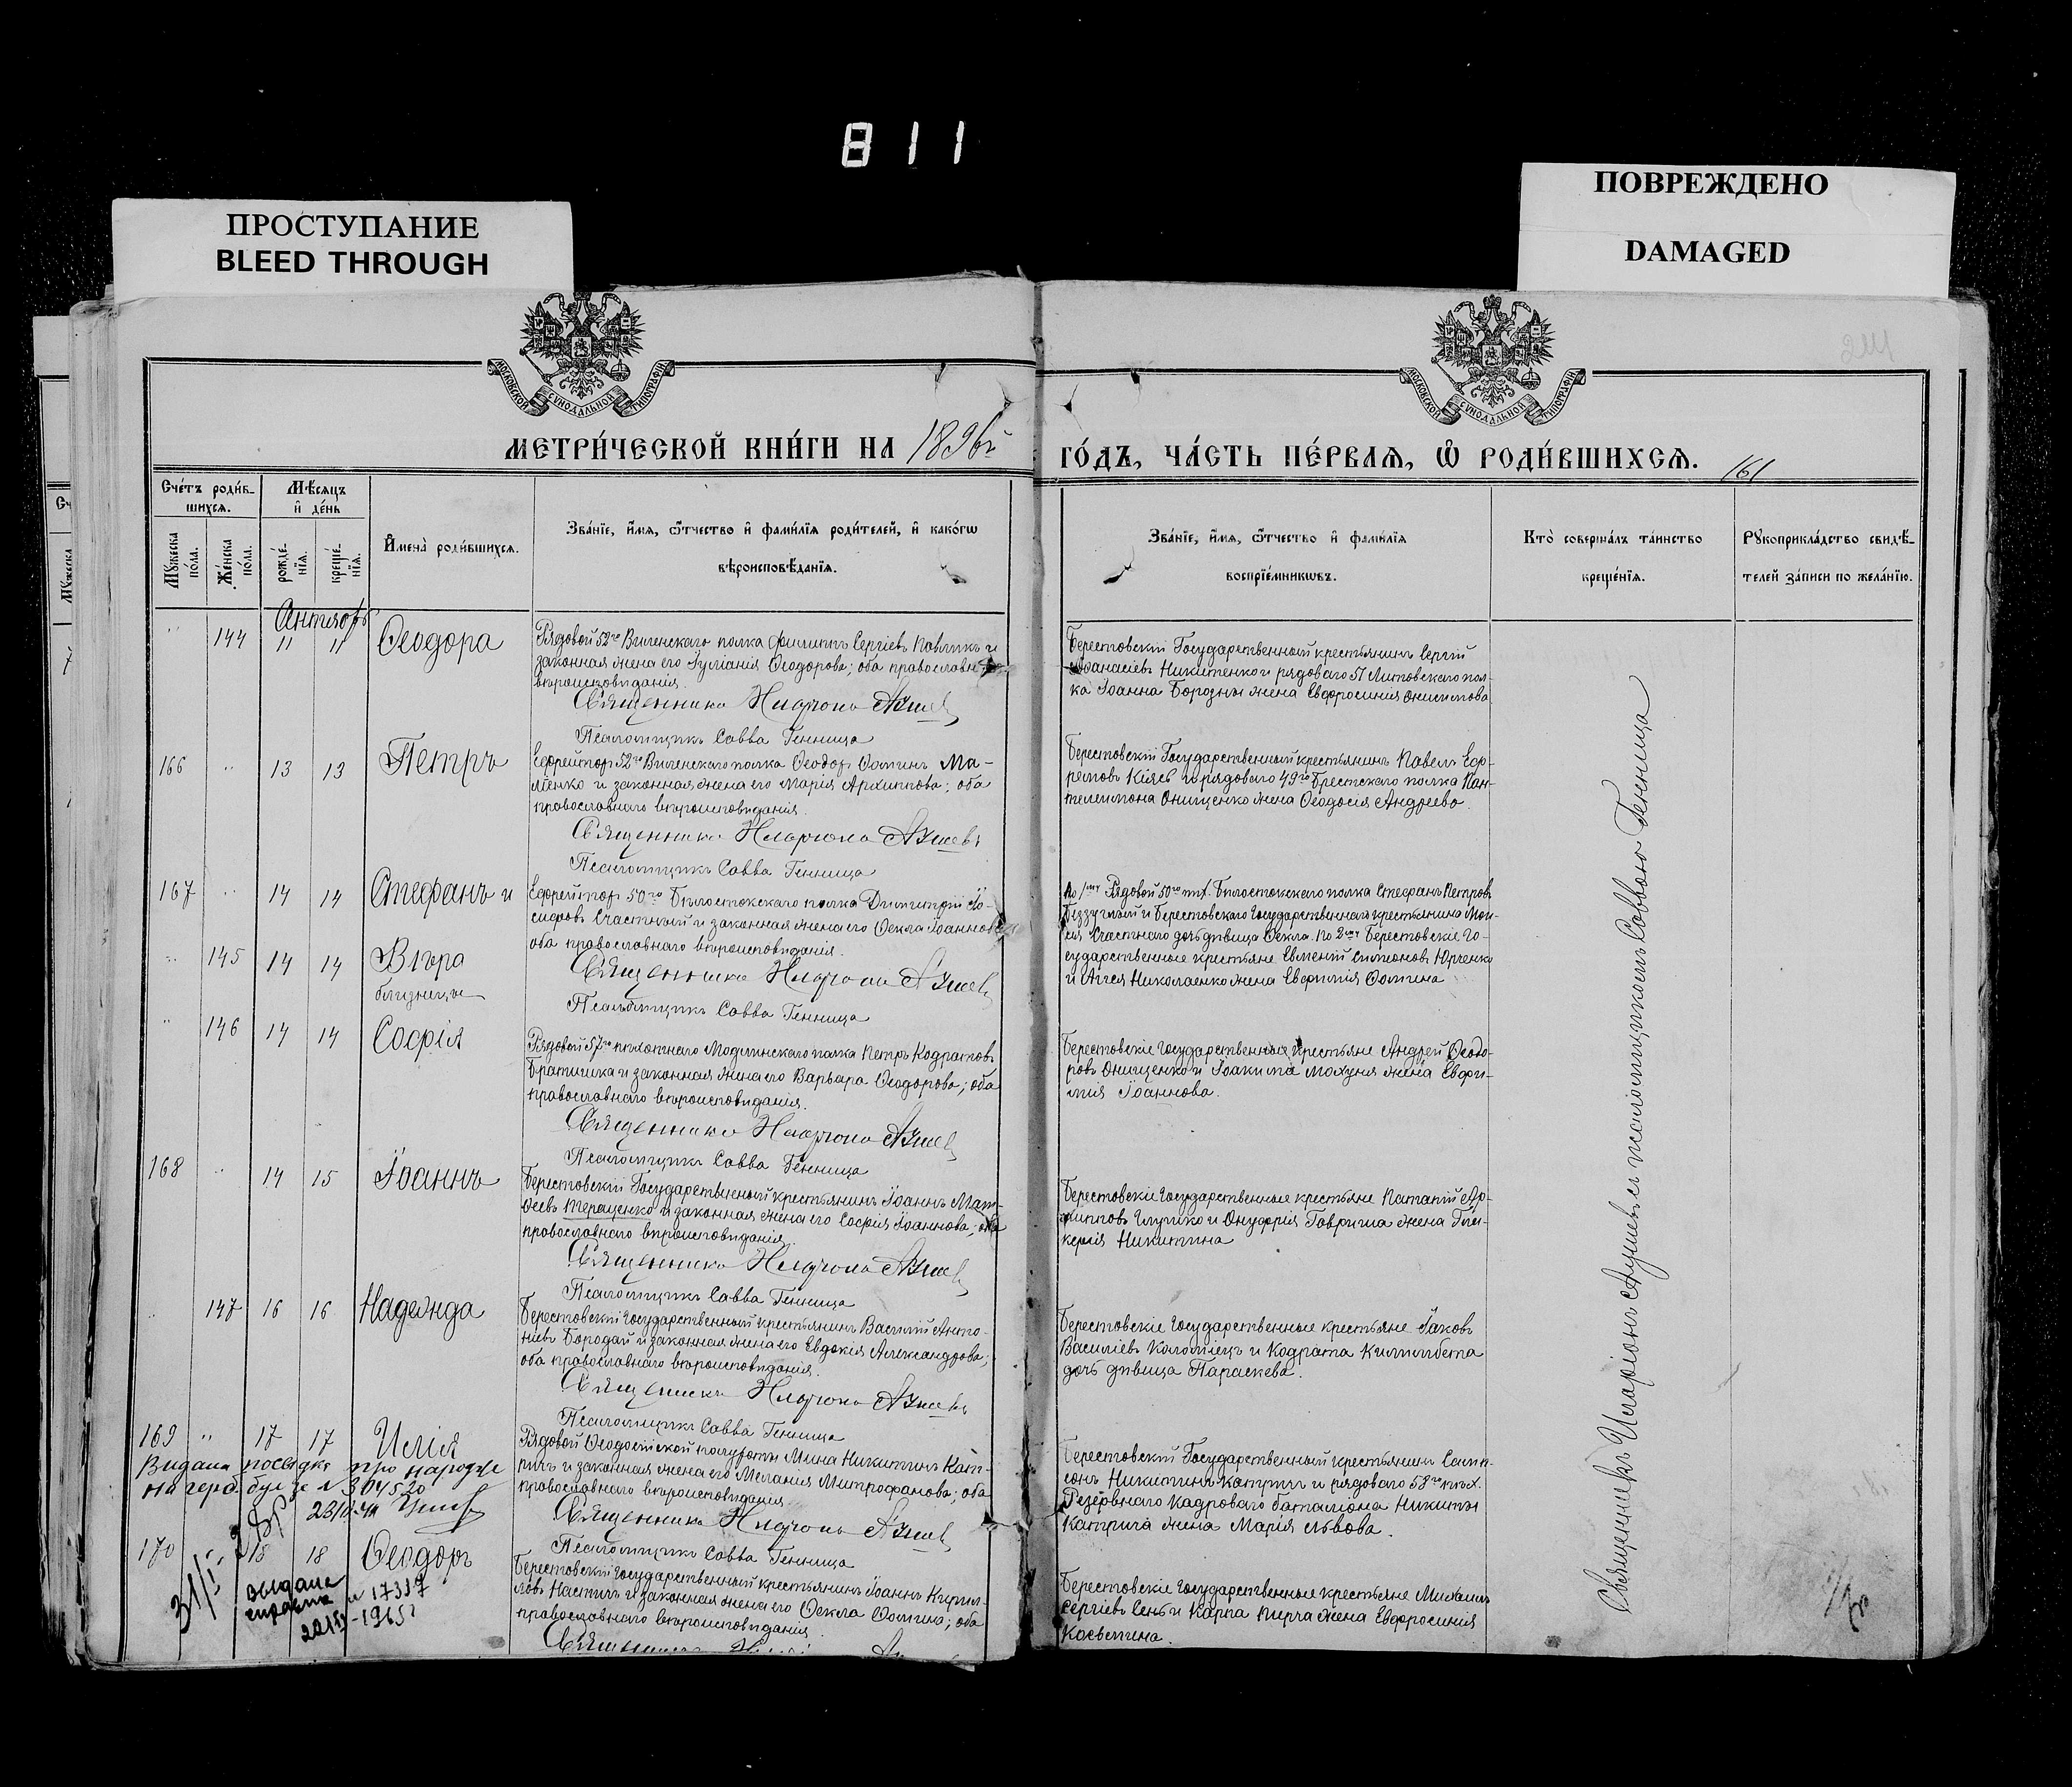 811
ПРОСТУПАНИЕ
BLEED THROUGH
ПОВРЕЖДЕНО
DAMAGED
МОСКОВСКОЙ СѴНОДАЛЬНОЙ ТИПОГРАФІИ
МОСКОВСКОЙ СѴНОДАЛЬНОЙ ТИПОГРАФІИ
МЕТРИ́ЧЕСКОЙ КНИ́ГИ НА 1896й
ГО́ДЪ, ЧА́СТЬ ПЕ́РВАЯ, Ѡ РОДИ́ВШИХСЯ. 161
Сче́тъ роди́в-
шихся.
Мѣ́сяцъ
и҆ де́нь
Мꙋ́жеска по́ла.
Же́нска по́ла.
рожде́-
нїя.
креще́-
нїя.
И҆мена̀ роди́вшихся.
Зва́нїе, и҆́мя, ѻ҆́тчество и҆ фами́лїя роди́телей, и҆ како́гѡ
вѣроисповѣ́данїя.
Зва́нїе, и҆́мя, ѻ҆́тчество и҆ фами́лїя
воспрїе́мникѡвъ.
Кто̀ соверша́лъ та́инство
креще́нїя.
Рꙋкоприкла́дство свидѣ́-
телей за́писи по жела́нїю.
Сентябрь
" 144 11 11 Ѳеодора
Рядовой 52го Виленскаго полка Филиппъ Сергіевъ Павликъ и
законная жена его Іуліанія Ѳеодорова; оба православн
вѣроисповѣданія.
Священникъ Иларіонъ
Псаломщикъ Савва Генница
Берестовскій Государственный крестьянинъ Сергій
Аѳанасіевъ Никитенко и рядоваго 51 Литовскаго пол-
ка Іоанна Борозны жена Евфросинія Онисимова
166 " 13 13 Петръ
Ефрейторъ 52го Виленскаго полка Ѳеодоръ Ѳоминъ Ма-
ліенко и законная жена его Марія Архиппова; оба
православнаго вѣроисповѣданія.
Священникъ Иларіонъ
Псаломщикъ Савва Генница
Берестовскій Государственный крестьянинъ Павелъ Еф-
ремовъ Кіяевъ и рядоваго 49го Брестскаго полка Пан-
телеимона Онищенко жена Ѳеодосія Андреева.
167 " 14 14 Стефанъ и
Ефрейторъ 50го Бѣлостокскаго полка Димитрій Іо-
сифовъ Счастный и законная жена его Ѳекла Іоаннов
оба православнаго вѣроисповѣданія.
" 145 14 14 Вѣра
близнецы
Священникъ Иларіонъ
Псаломщикъ Савва Генница
По 1му Рядовой 50го пѣх. Бѣлостокскаго полка Стефанъ Петровъ
Беззуглый и Берестовскаго Государственнаго крестьянина Мои-
сія Счастнаго дочь дѣвица Ѳекла. По 2му Берестовскіе Го-
сударственные крестьяне Евменій Симеоновъ Юрченко
и Аггея Николаенко жена Евфимія Ѳомина
" 146 14 14 Софія
Рядовой 57го пѣхотнаго Модлинскаго полка Петръ Кодратовъ
Братишка и законная жена его Варвара Ѳеодорова; оба
православнаго вѣроисповѣданія.
Священникъ Иларіонъ
Псаломщикъ Савва Генница
Берестовскіе Государственные крестьяне Андрей Ѳеодо-
ровъ Онищенко и Іоакима Махуня жена Евфи-
мія Іоаннова.
168 " 14 15 Іоаннъ
Берестовскій Государственный крестьянинъ Іоаннъ Мат-
ѳеевъ Терещенко и законная жена его Софія Іоаннова; оба
православнаго вѣроисповѣданія.
Священникъ Иларіонъ
Псаломщикъ Савва Генница
Берестовскіе Государственные крестьяне Ипатий Ар-
хипповъ Глушко и Онуфрія Гавриша жена Гли-
керія Никитина
" 147 16 16 Надежда
Берестовскій Государственный крестьянинъ Василій Анто-
ніевъ Бородай и законная жена его Евдокія Александрова;
оба православнаго вѣроисповѣданія.
Священникъ Иларіонъ
Псаломщикъ Савва Генница
Берестовскіе Государственные крестьяне Іаковъ
Василіевъ Коломіецъ и Кодрата
дочь дѣвица Параскева.
169 " 17 17 Илія
Рядовой Ѳеодосійской полуроты Мина Никитинъ Кат-
ричъ и законная жена его Меланія Митрофанова; оба
православнаго вѣроисповѣданія.
Видана посвідка про народже
на герб бумзе № 304520
Священникъ Иларіонъ
Псаломщикъ Савва Генница
Берестовскій Государственный крестьянинъ Самп-
сонъ Никитинъ Катричъ и рядоваго 58го пѣх.
Резервнаго Кадроваго баталіона Никиты
Катрича жена Марія Львова.
170 18 18 Ѳеодоръ
Берестовскій Государственный крестьянинъ Іоаннъ Кирил-
ловъ и законная жена его Ѳекла Ѳомина; оба
православнаго вѣроисповѣданія
выдана
справка № 17317
1965г
Берестовскіе Государственные крестьяне Михаилъ
Сергіевъ Сень и Карпа Кирча жена Евфросинія
Косьмина.
Священникъ Иларіонъ съ псаломщикомъ Саввою Генница